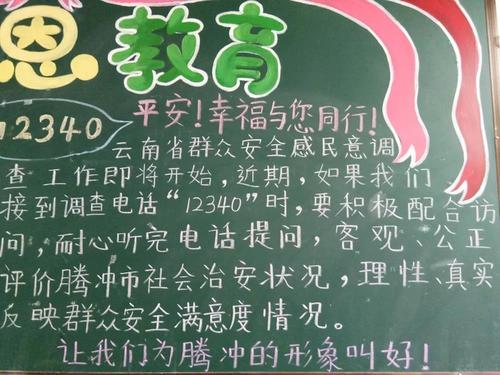 恩教育
12340
平安！幸福与您同行！
云南省群众安全感民意调
查工作即将开始，近期，如果我们
接到调查电话“12340”时，要积极配合访
问，耐心听完电话提问，客观、公正
评价腾冲市社会治安状况，理性、真实
反映群众安全满意度情况。
让我们为腾冲的形象叫好！